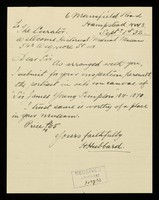 6 Mansfield Road
Hampstead NW3
Sept 21st 32
To
The Curator.
Wellcome Historical Medical Museum
54a Wigmore St W
Dear Sir
As arranged with you, I
submit for your inspection, herewith
the portrait in oils on canvas of
Sir James Young Simpson Bt 1870
I trust same is worthy of a place
in your museum.
Price
Yours faithfully
H Hubbard